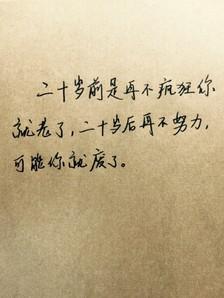 二十岁前是再不疯狂你
就老了，二十岁后再不努力，
可能你就废了。